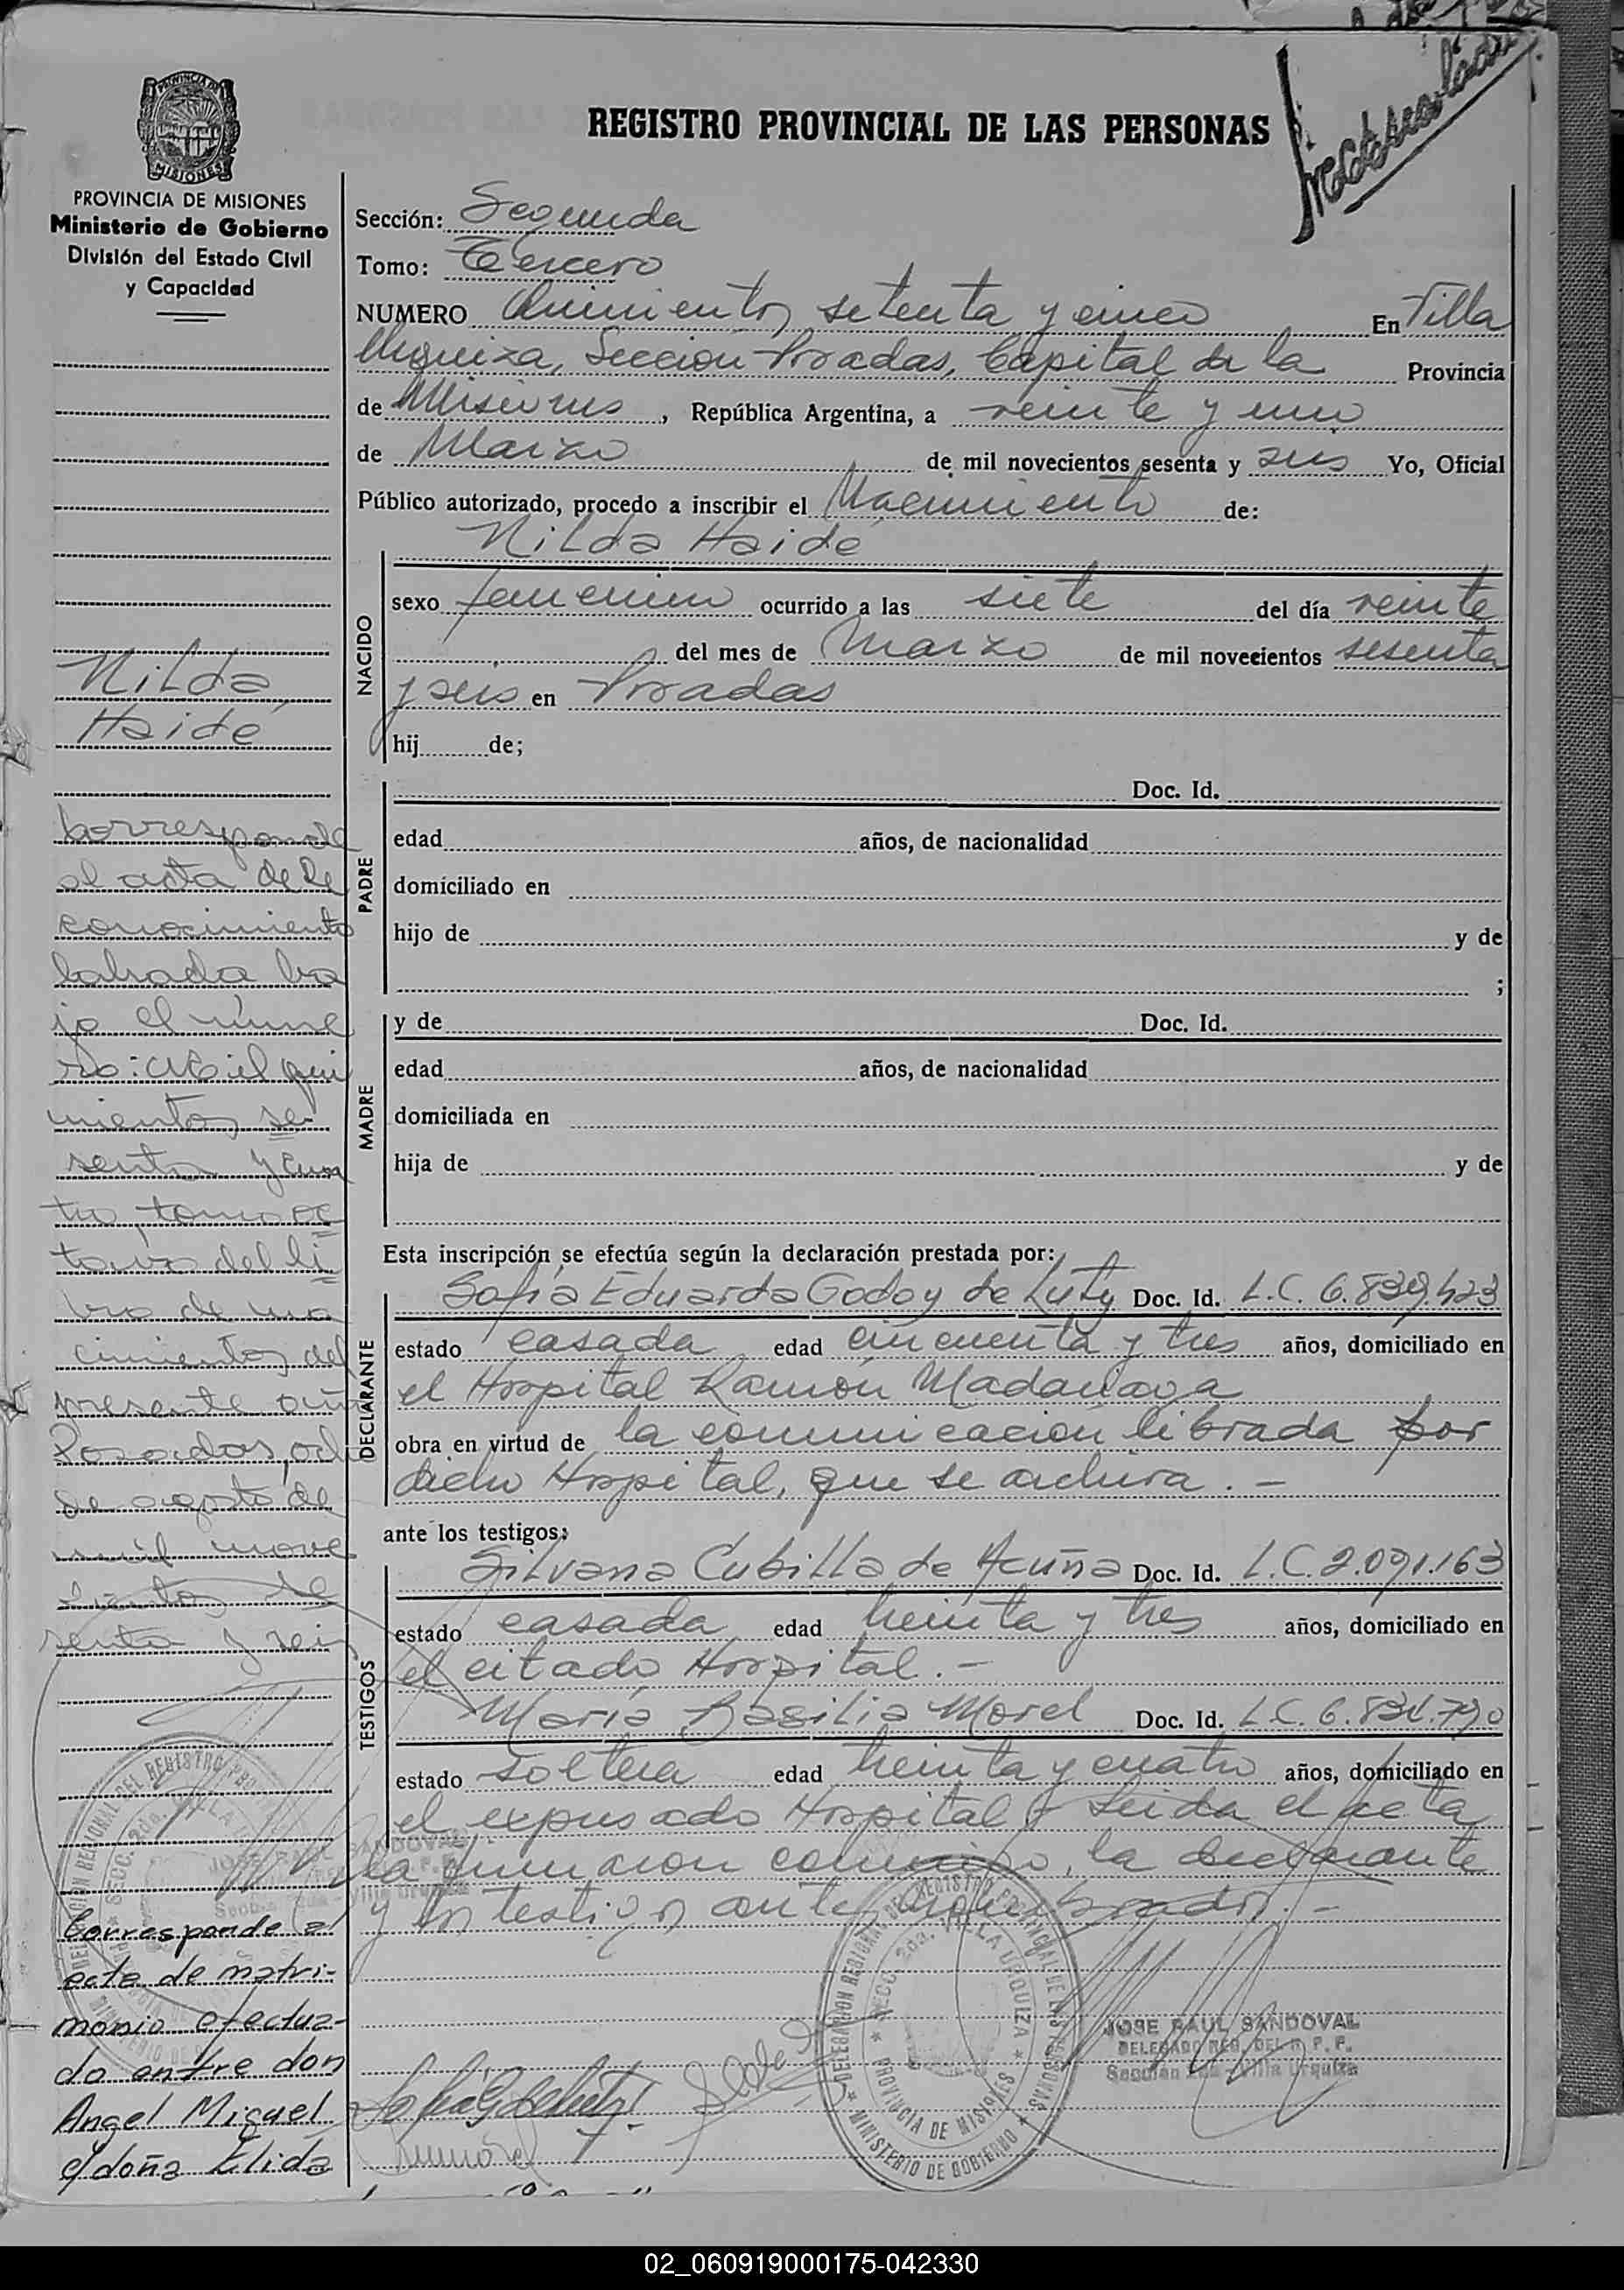 PROVINCIA DE
MISIONES
PROVINCIA DE MISIONES
Ministerio de Gobierno
División del Estado Civil
y Capacidad
Nilda
Haidé
Corresponde
al acta de Re
conocimiento
labrada ba
jo el núme
ro: Mil qui
nientos se
senta y cua
tro, tomo oc
tavo del li
bro de na
cimientos del
presente año
Posadas, och
de agosto de
mil nove
cientos se
senta y seis
Corresponde al
acta de matri-
monio efectua-
do entre don
Angel Miguel
y doña Elida
REGISTRO PROVINCIAL DE LAS PERSONAS
Sección: Segunda
Tomo: Tercero
NUMERO Quinientos setenta y cinco En Villa
Urquiza, Sección Posadas, Capital de la Provincia
de Misiones, República Argentina, a veinte y uno
de Marzo de mil novecientos sesenta y seis Yo, Oficial
Público autorizado, procedo a inscribir el Nacimiento de:
Nilda Haidé
NACIDO
sexo femenino ocurrido a las siete del día veinte
del mes de Marzo de mil novecientos sesenta
y seis en Posadas
hij de;
PADRE
Doc. Id.
edad años, de nacionalidad
domiciliado en
hijo de y de
;
MADRE
y de Doc. Id.
edad años, de nacionalidad
domiciliada en
hija de y de
Esta inscripción se efectúa según la declaración prestada por:
DECLARANTE
Sofía Eduarda Godoy de Luty Doc. Id. L.C. 6.839.423
estado casada edad cincuenta y tres años, domiciliado en
el Hospital Ramón Madariaga
obra en virtud de la comunicación librada por
dicho Hospital, que se archiva. -
ante los testigos:
TESTIGOS
Silvana Cubilla de Acuña Doc. Id. L.C. 2.091.163
estado casada edad treinta y tres años, domiciliado en
el citado Hospital. -
María Basilia Morel Doc. Id. L.C. 6.831.790
estado soltera edad treinta y cuatro años, domiciliado en
el expresado Hospital - Leida el acta
la firman conmigo, la declarante
y los testigos antes nombrados. -
DELEGACION REGIONAL DEL REGISTRO PROVINCIAL DE LAS PERSONAS
SECC. 2da. VILLA URQUIZA
PROVINCIA DE MISIONES
MINISTERIO DE GOBIERNO
JOSE RAUL SANDOVAL
DELEGADO REG. DEL R. P. P.
Sección 2da - Villa Urquiza
02_060919000175-042330